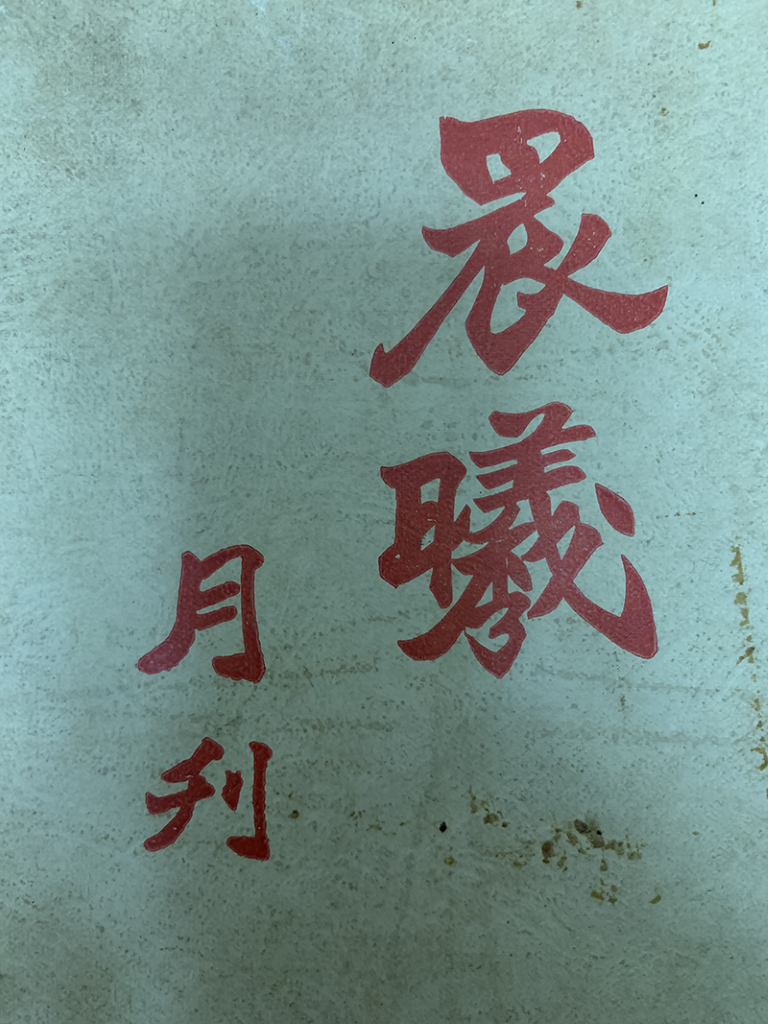 晨曦
月刊